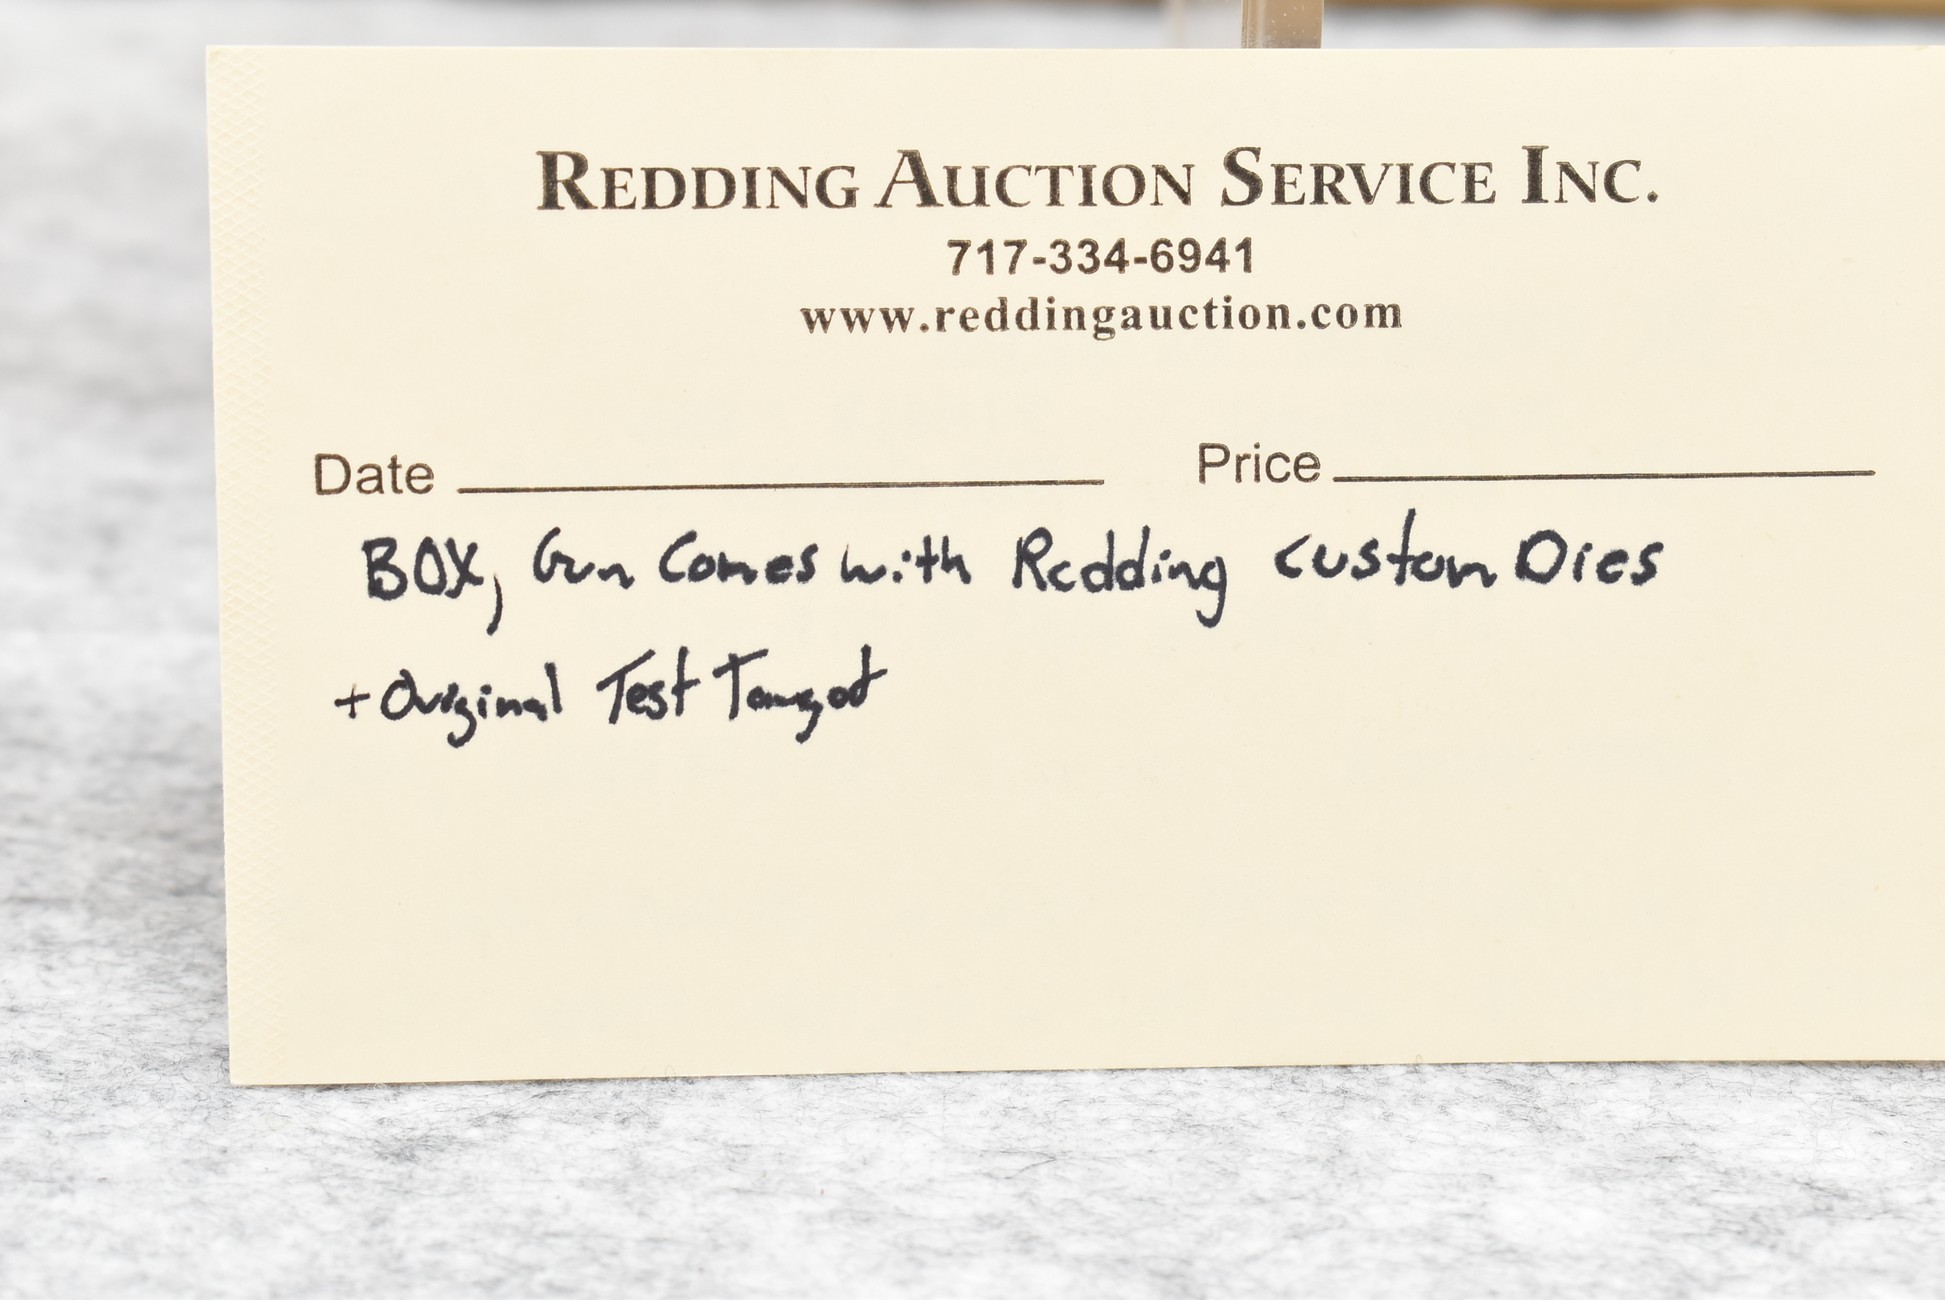 REDDING AUCTION SERVICE INC.
717-334-6941
www.reddingauction.com
Date Price
BOX, Gun Comes with Redding Custom Dies
+ Original Test Target